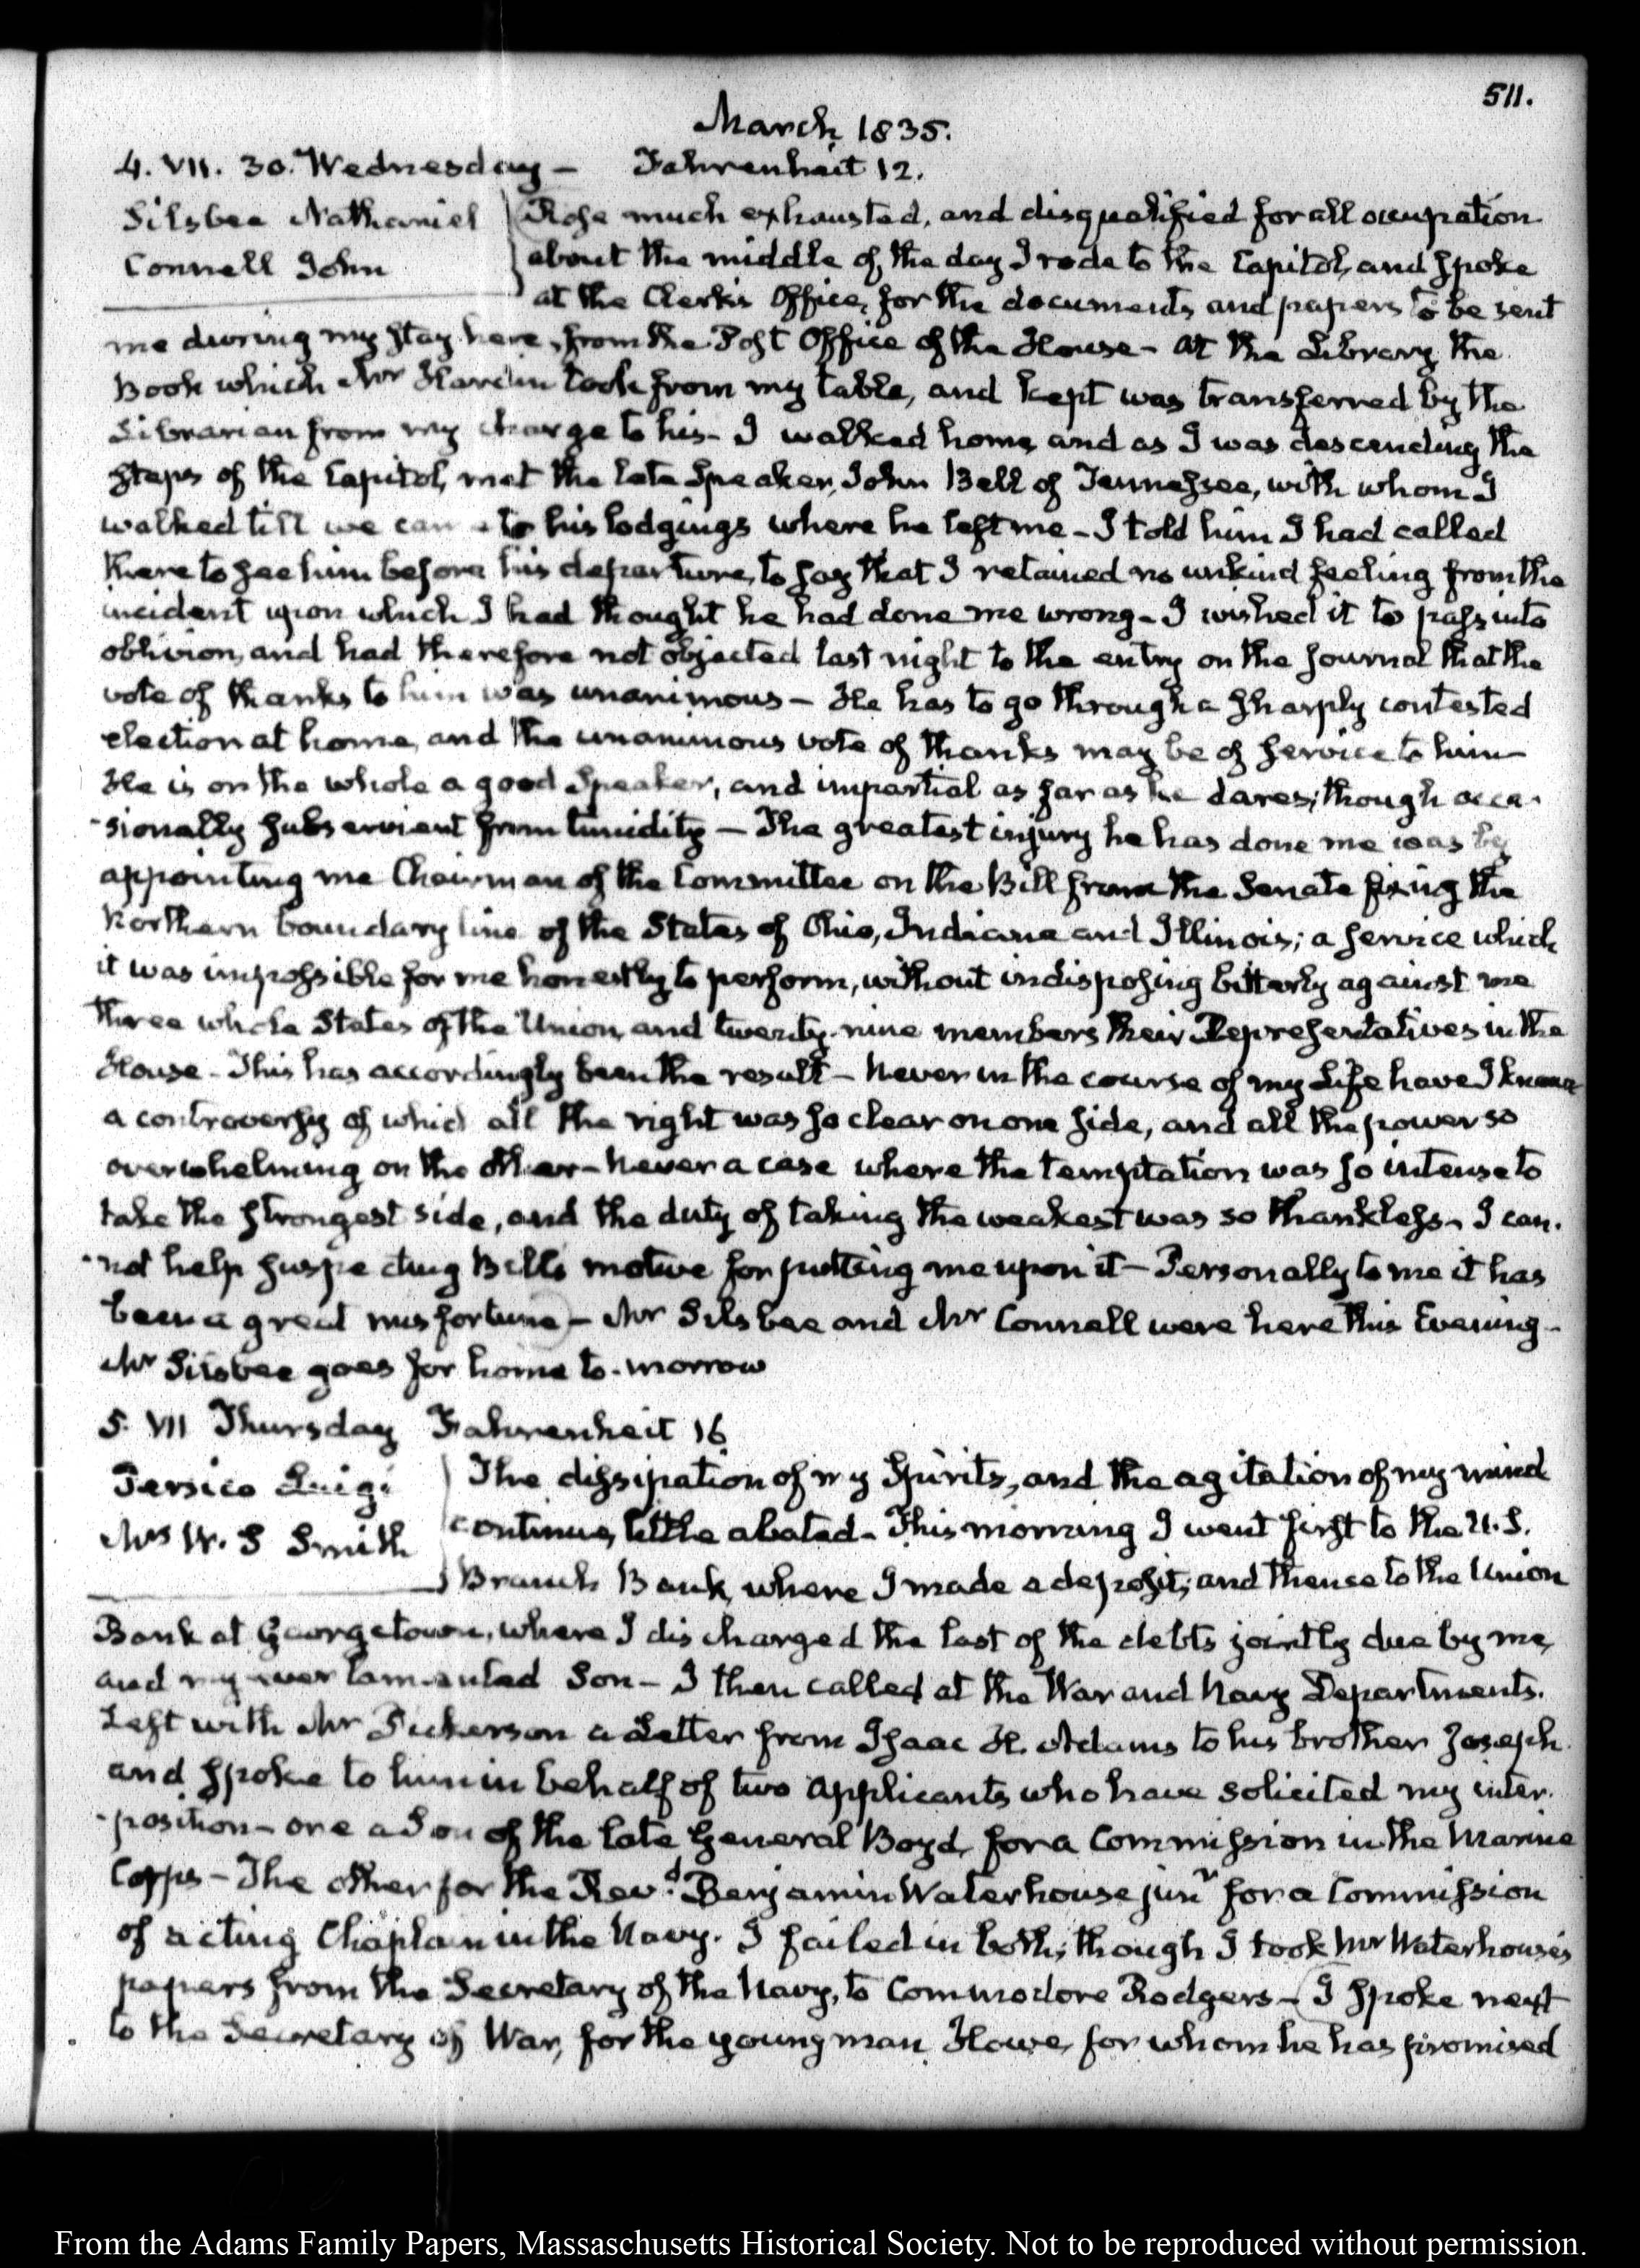 511.
March 1835.
4. VII. 30. Wednesday – Fahrenheit 12.
Silsbee Nathaniel
Connell John
Rose much exhausted, and disqualified for all occupation
about the middle of the day I rode to the Capitol, and spoke
at the Clerk's Office, for the documents and papers to be sent
me during my stay here, from the Post Office of the House – At the Library the
Book which Mr Hardin took from my table, and kept was transferred by the
Librarian from my charge to his – I walked home, and as I was descending the
steps of the Capitol, met the late Speaker, John Bell of Tennessee, with whom I
walked till we came to his lodgings where he left me – I told him I had called
there to see him before his departure, to say that I retained no unkind feeling from the
incident upon which I had thought he had done me wrong – I wished it to pass into
oblivion, and had therefore not objected last night to the entry on the Journal that the
vote of thanks to him was unanimous – He has to go through a sharply contested
election at home, and the unanimous vote of thanks may be of service to him –
He is on the whole a good Speaker, and impartial as far as he dares; though occa-
-sionally subservient from timidity – The greatest injury he has done me was by
appointing me Chairman of the Committee on the Bill from the Senate fixing the
Northern boundary line of the States of Ohio, Indiana and Illinois; a service which
it was impossible for me honestly to perform, without indisposing bitterly against me
three whole States of the Union, and twenty-nine members their Representatives in the
House – This has accordingly been the result – Never in the course of my Life have I known
a controversy of which all the right was so clear on one side, and all the power so
overwhelming on the other – Never a case where the temptation was so intense to
take the strongest side, and the duty of taking the weakest was so thankless – I can-
-not help suspecting Bell's motive for putting me upon it – Personally to me it has
been a great misfortune – Mr Silsbee and Mr Connell were here this Evening –
Mr Silsbee goes for home to-morrow
5. VII Thursday Fahrenheit 16
Persico Luigi
Mrs W. S Smith
The dissipation of my Spirits, and the agitation of my mind
continue, little abated – This morning I went first to the U.S.
Branch Bank, where I made a deposit; and thence to the Union
Bank at Georgetown, where I discharged the last of the debts jointly due by me,
and my ever lamented Son – I then called at the War and Navy Departments.
Left with Mr Dickerson a Letter from Isaac H. Adams to his brother Joseph
and spoke to him in behalf of two applicants who have solicited my inter-
-position – one a Son of the late General Boyd, for a Commission in the Marine
Corps – The other for the Revd. Benjamin Waterhouse junr for a Commission
of acting Chaplain in the Navy. I failed in both; though I took Mr Waterhouse's
papers from the Secretary of the Navy, to Commodore Rodgers – I spoke next
to the Secretary of War, for the young man Howe, for whom he has promised
From the Adams Family Papers, Massaschusetts Historical Society. Not to be reproduced without permission.